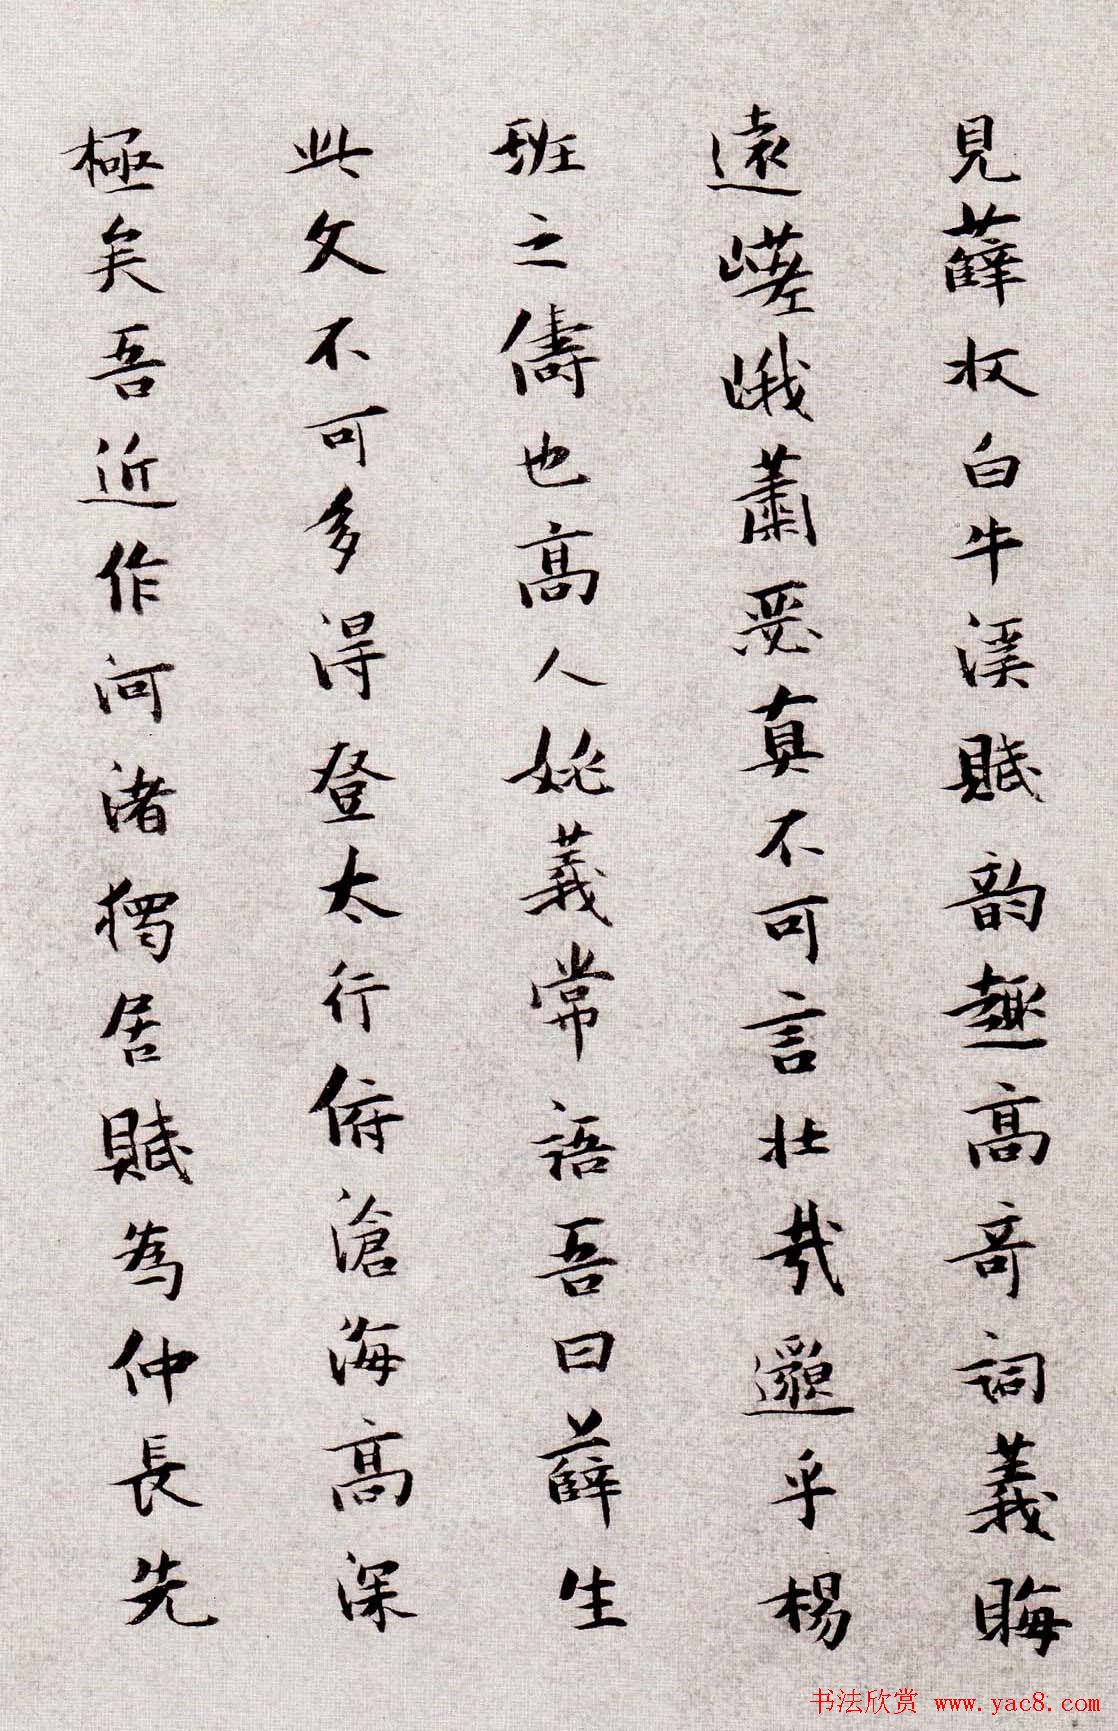 見薛收白牛溪賦韵趣高奇詞義晦
遠嵯峨蕭惡真不可言壯哉邈乎楊
班之儔也高人姚義常語吾曰薛生
此文不可多得登太行俯滄海高深
極矣吾近作河渚獨居賦為仲長先
书法欣赏 www.yac8.com